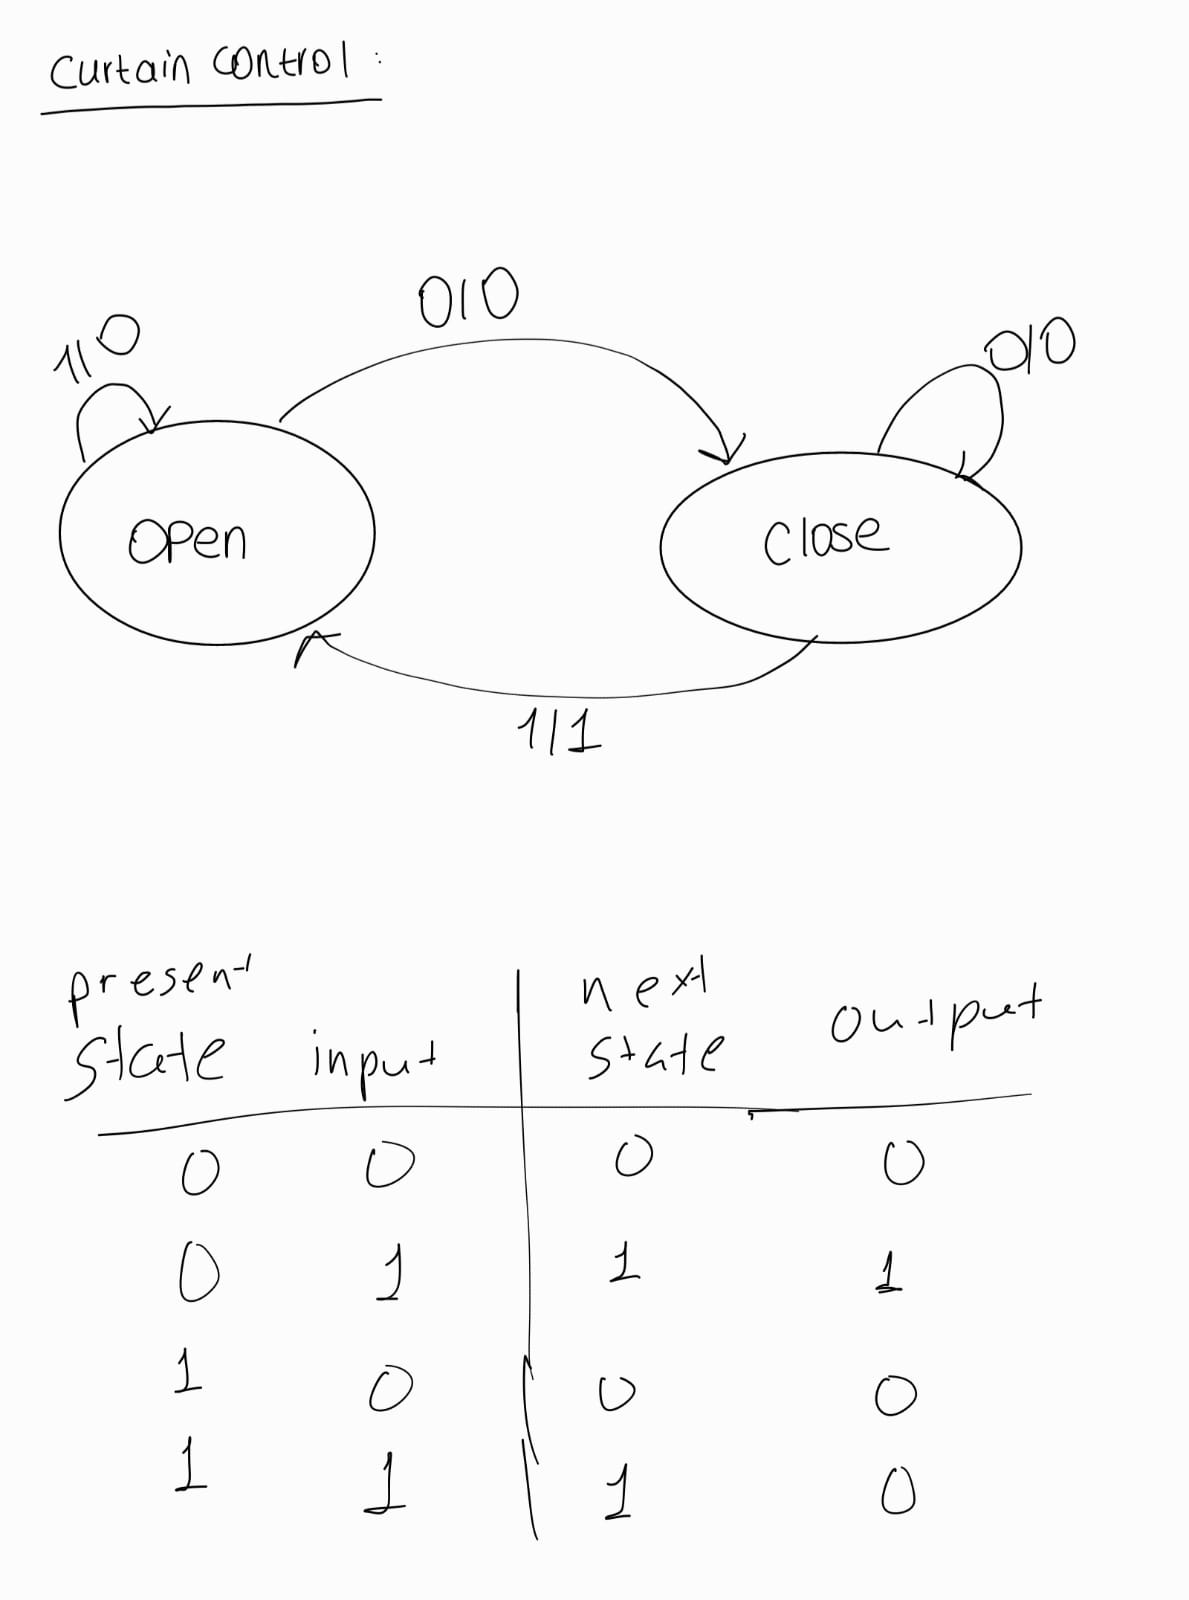 Curtain control :
0/0
1/0
0/0
Open
Close
1/1
present
state input
next
state output
0 0 0 0
0 1 1 1
1 0 0 0
1 1 1 0